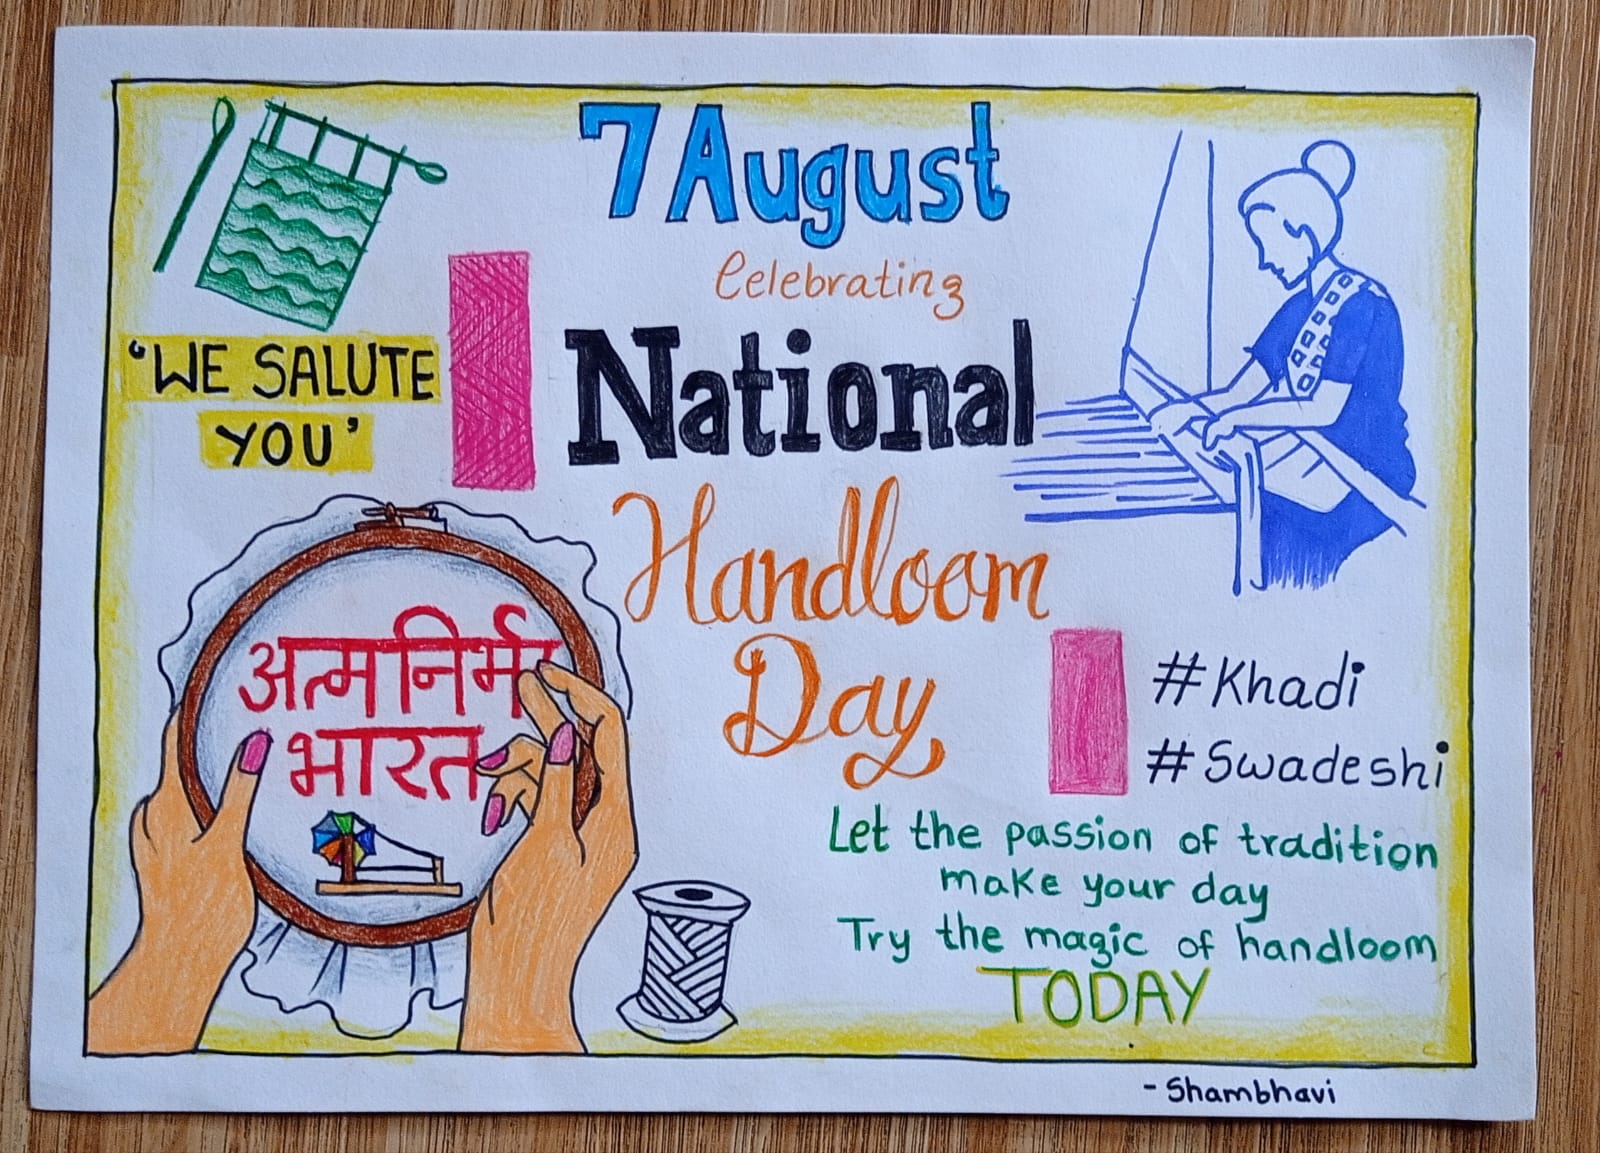 7 August
Celebrating
National
Handloom
Day
'WE SALUTE
YOU'
अत्मनिर्भर
भारत
#Khadi
#Swadeshi
Let the passion of tradition
make your day
Try the magic of handloom
TODAY
-Shambhavi